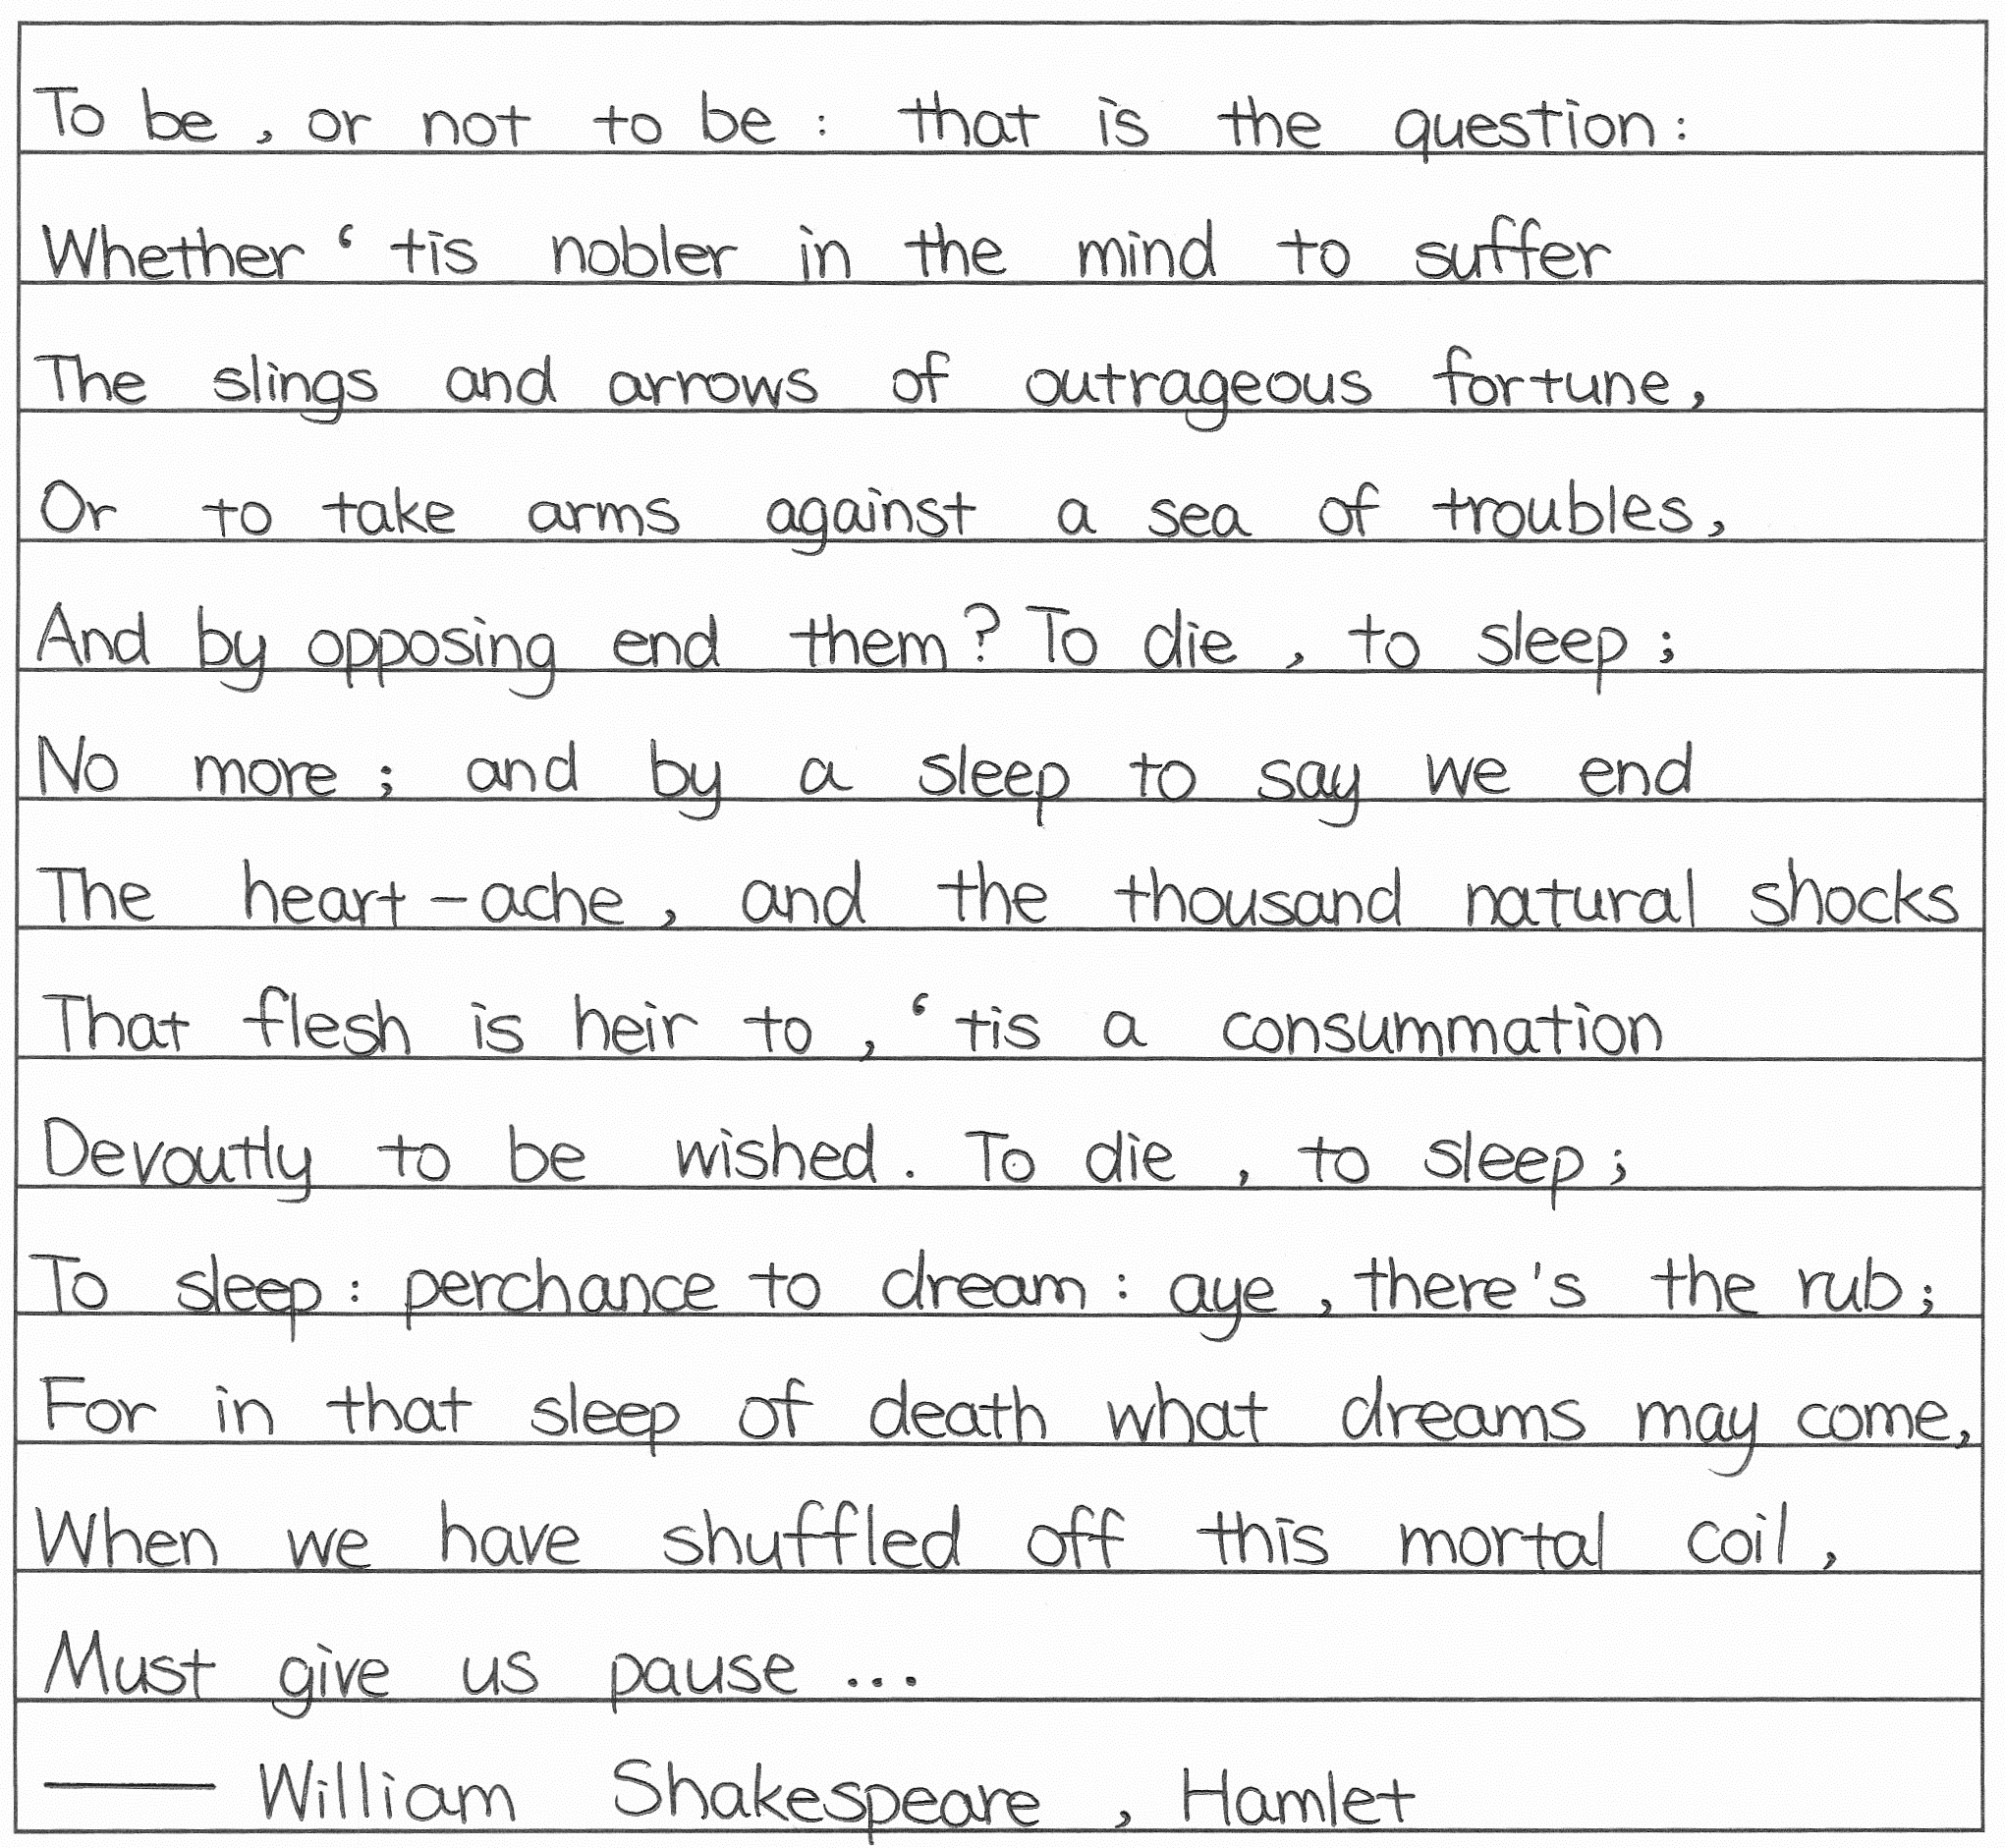 To be, or not to be: that is the question:
Whether ‘tis nobler in the mind to suffer
The slings and arrows of outrageous fortune,
Or to take arms against a sea of troubles,
And by opposing end them? To die, to sleep;
No more; and by a sleep to say we end
The heart-ache, and the thousand natural shocks
That flesh is heir to, ‘tis a consummation
Devoutly to be wished. To die, to sleep;
To sleep: perchance to dream: aye, there's the rub;
For in that sleep of death what dreams may come,
When we have shuffled off this mortal coil,
Must give us pause...
—— William Shakespeare, Hamlet